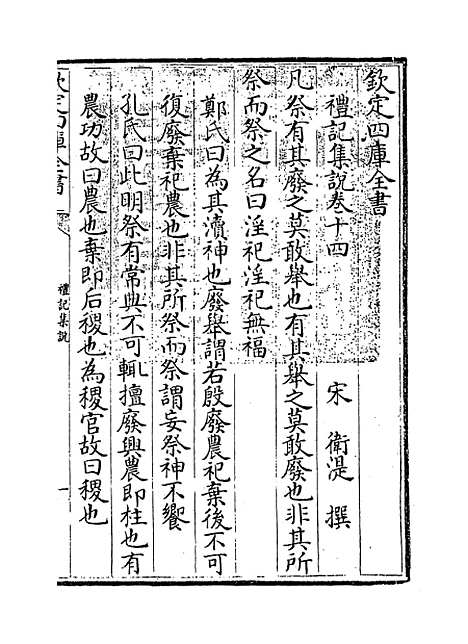 欽定四庫全書
禮記集說卷十四
宋 衛湜 撰
凡祭有其廢之莫敢舉也有其舉之莫敢廢也非其所
祭而祭之名曰淫祀淫祀無福
鄭氏曰為其瀆神也廢舉謂若殷廢農祀棄後不可
復廢棄祀農也非其所祭而祭謂妄祭神不饗
孔氏曰此明祭有常典不可輒擅廢興農即柱也有
農功故曰農也棄即后稷也為稷官故曰稷也
欽定四庫全書
禮記集說
一